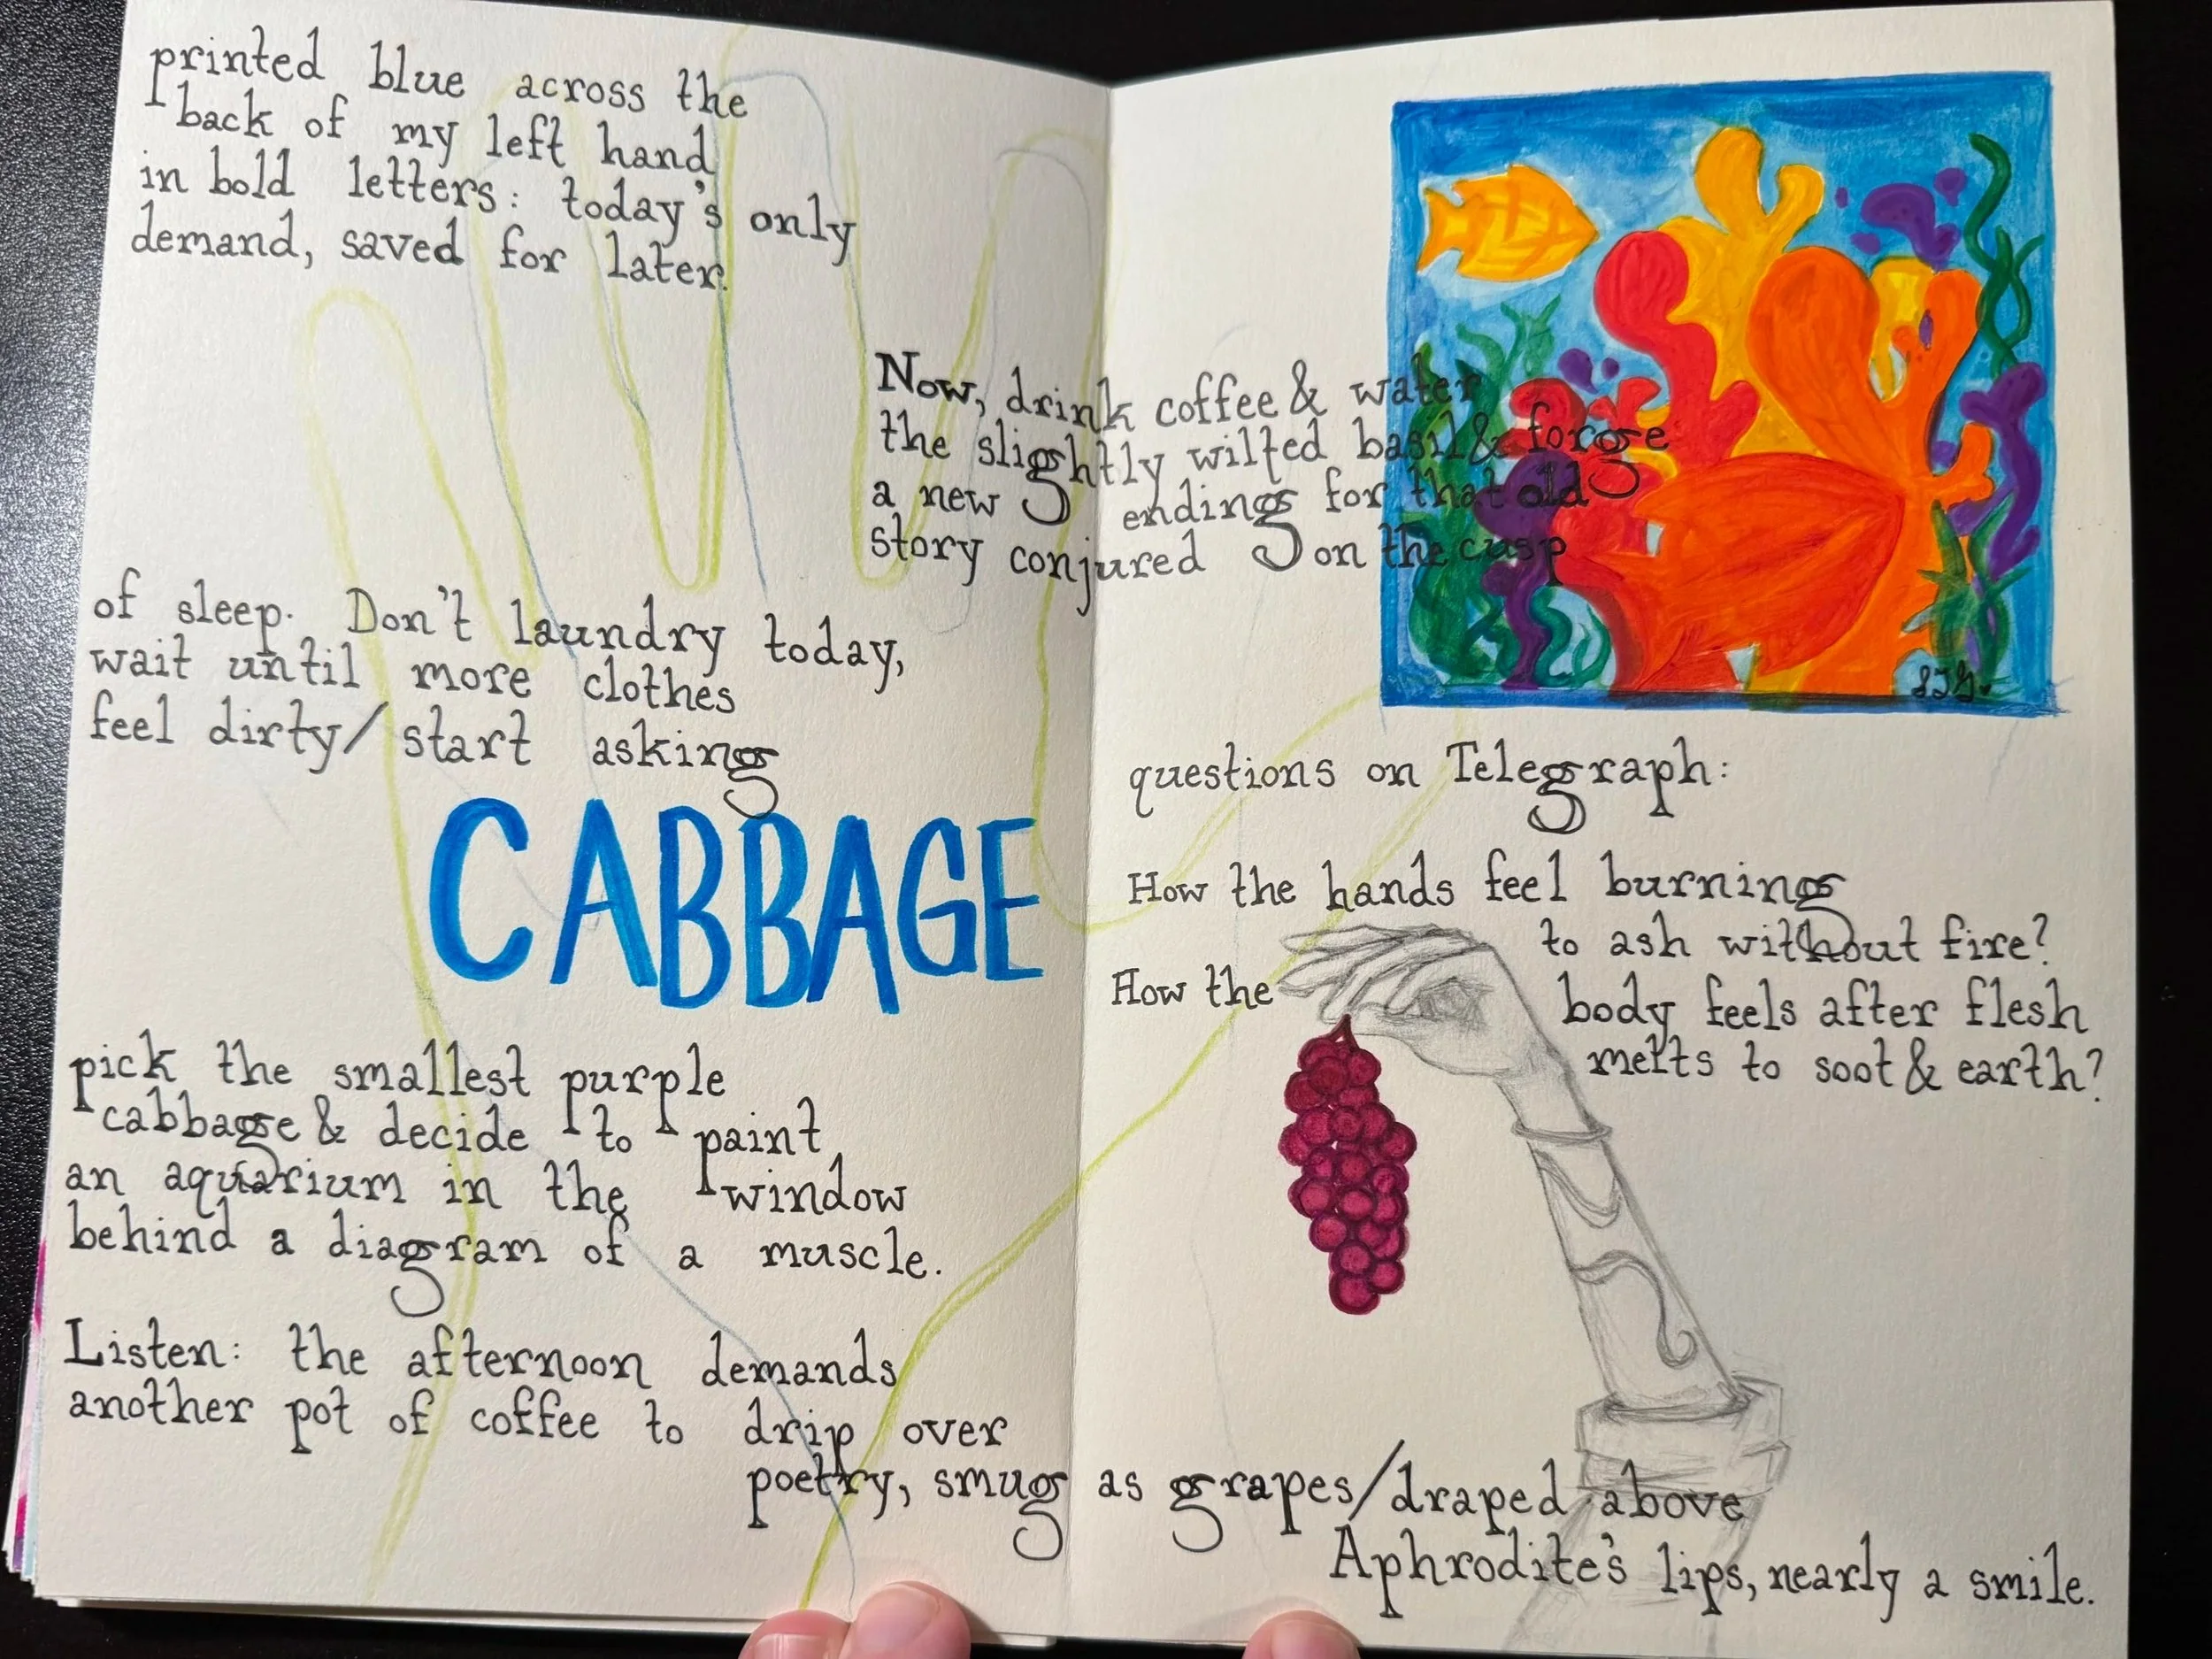 printed blue across the
back of my left hand
in bold letters: today's only
demand, saved for later.
Now, drink coffee & water
the slightly wilted basil & forge
a new endings for that old
story conjured on the cusp
of sleep. Don't laundry today,
wait until more clothes
feel dirty/ start asking
questions on Telegraph:
How the hands feel burning
to ash without fire?
How the body feels after flesh
melts to soot & earth?
CABBAGE
pick the smallest purple
cabbage & decide to paint
an aquarium in the window
behind a diagram of a muscle.
Listen: the afternoon demands
another pot of coffee to drip over
poetry, smug as grapes/draped above
Aphrodite's lips, nearly a smile.